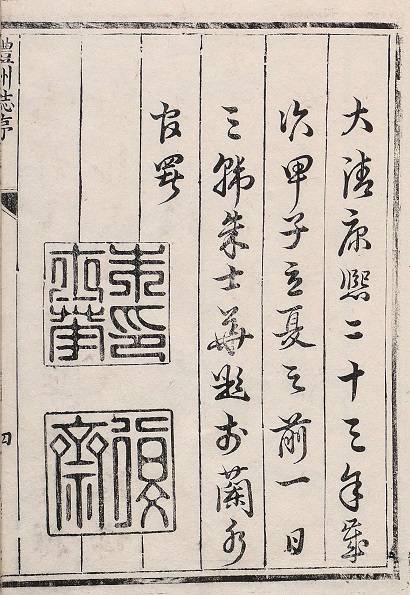 大清康熙二十三年歲
次甲子立夏之前一日
三韓朱士華題於蘭水
官署
朱印
士華
齋
澧州誌序
四